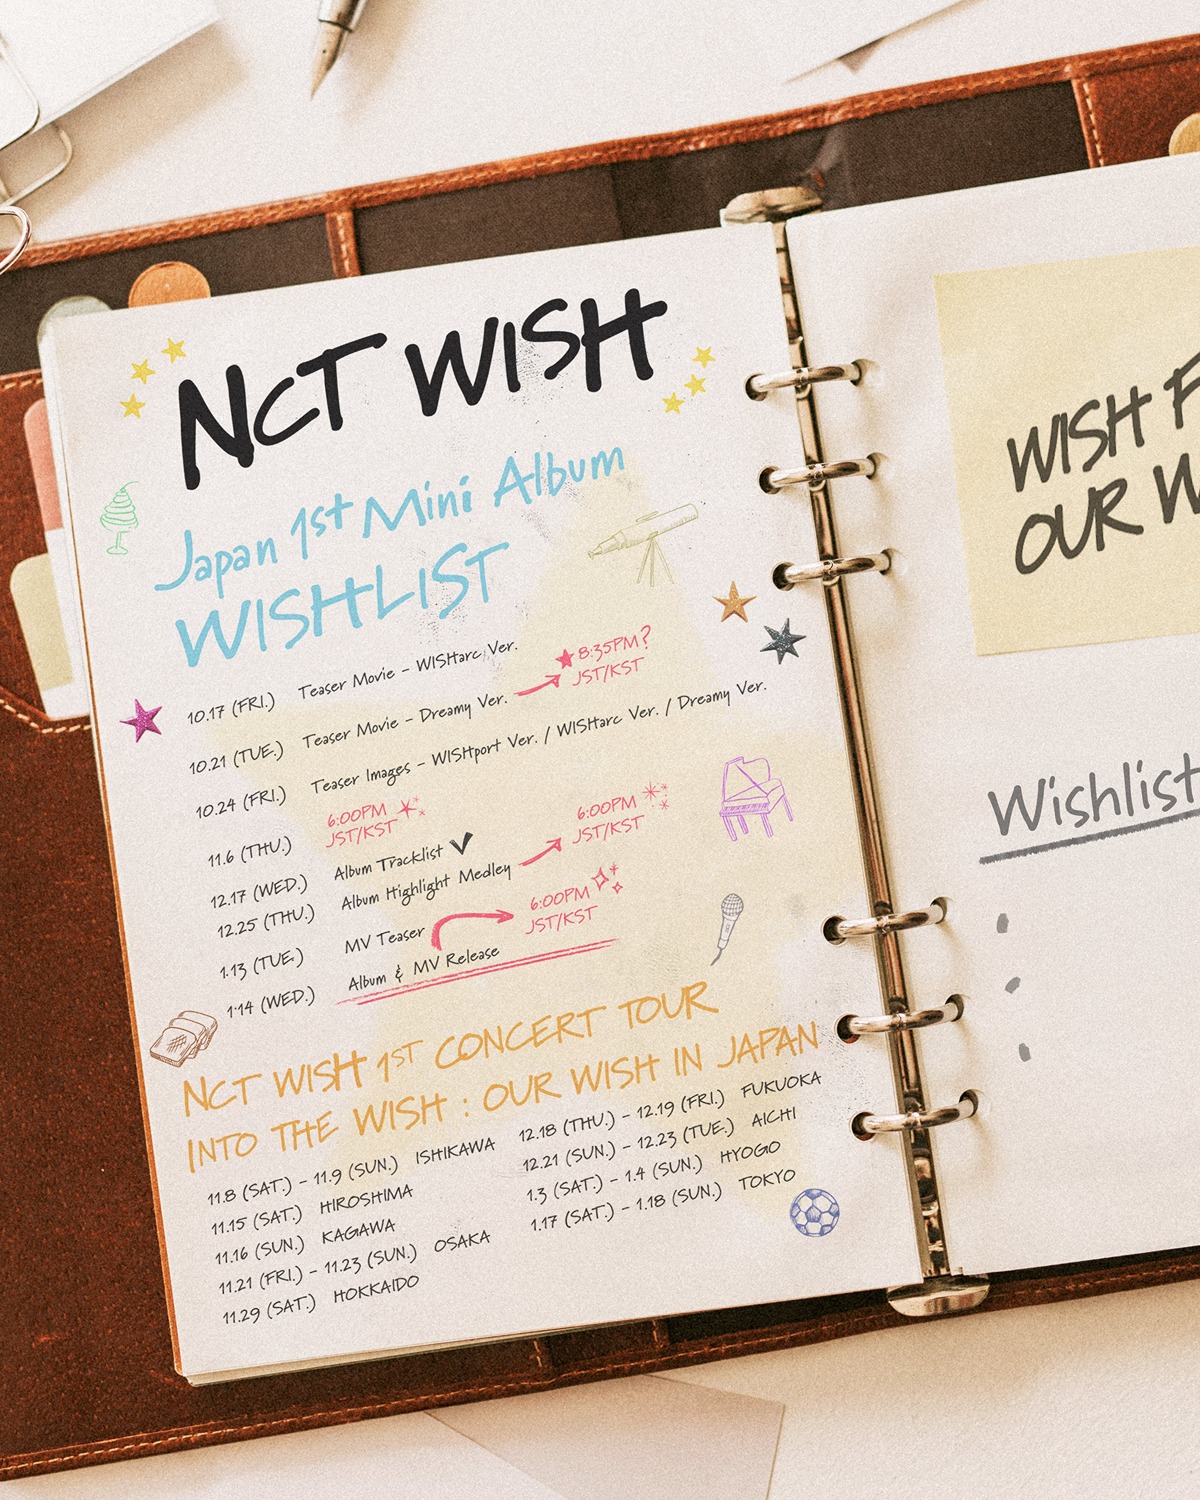 NCT WISH
Japan 1st Mini Album
WISHLIST
10.17 (FRI.) Teaser Movie - WISHarc Ver.
10.21 (TUE.) Teaser Movie - Dreamy Ver.
8:35PM?
JST/KST
10.24 (FRI.) Teaser Images - WISHport Ver. / WISHarc Ver. / Dreamy Ver.
11.6 (THU.) 6:00PM
JST/KST
12.17 (WED.) Album Tracklist
12.25 (THU.) Album Highlight Medley
6:00PM
JST/KST
1.13 (TUE.) MV Teaser
6:00PM
JST/KST
1.14 (WED.) Album & MV Release
NCT WISH 1ST CONCERT TOUR
INTO THE WISH : OUR WISH IN JAPAN
11.8 (SAT.) - 11.9 (SUN.) ISHIKAWA
11.15 (SAT.) HIROSHIMA
11.16 (SUN.) KAGAWA
11.21 (FRI.) - 11.23 (SUN.) OSAKA
11.29 (SAT.) HOKKAIDO
12.18 (THU.) - 12.19 (FRI.) FUKUOKA
12.21 (SUN.) - 12.23 (TUE.) AICHI
1.3 (SAT.) - 1.4 (SUN.) HYOGO
1.17 (SAT.) - 1.18 (SUN.) TOKYO
WISH
OUR
Wishlist